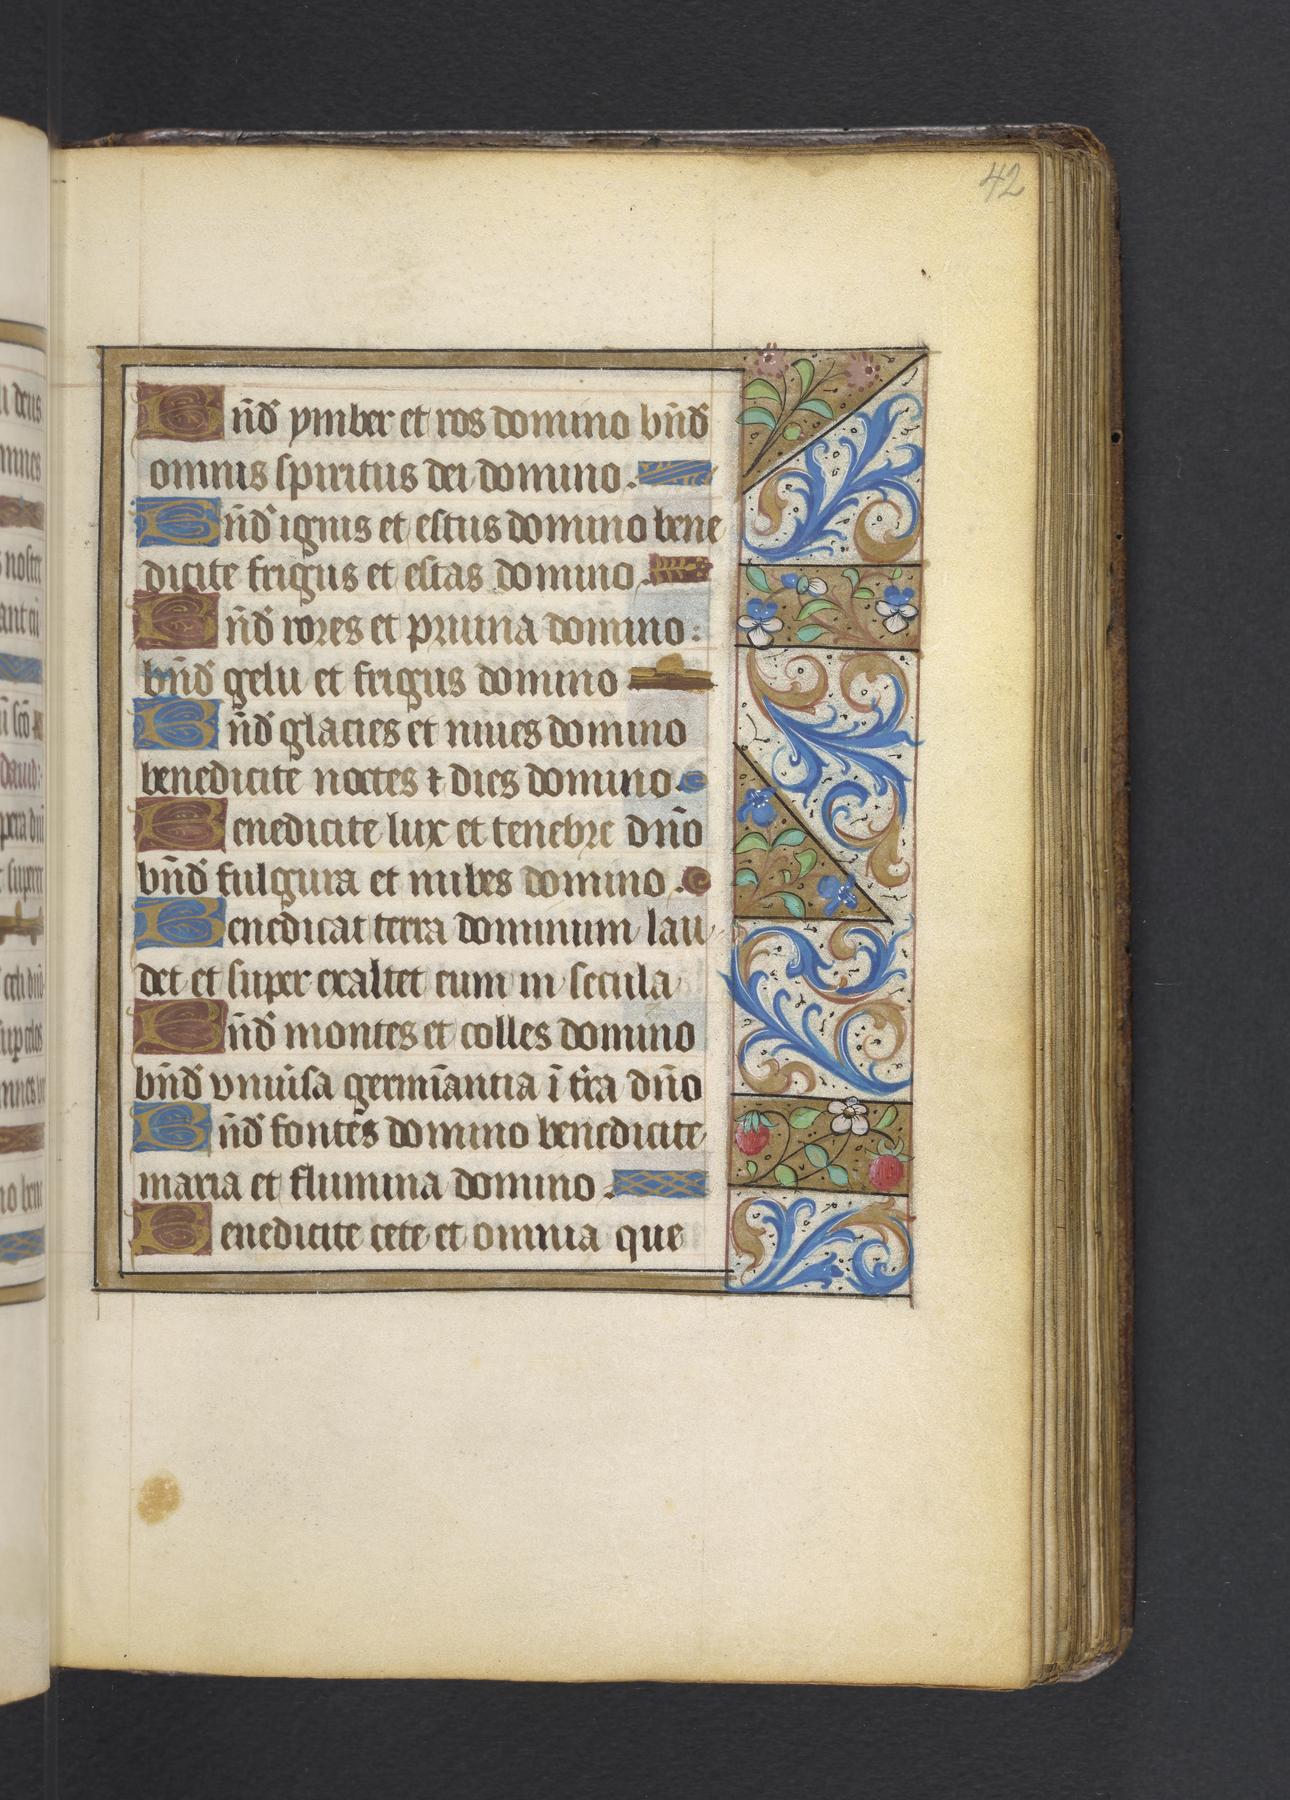 42
Bñd ymber et ros domino bñd
omnis spiritus dei domino.
Bñd ignis et estus domino bene
dicite frigus et estas domino.
Bñd rores et pruina domino:
bñd gelu et frigus domino
Bñd glacies et niues domino
benedicite noctes ⁊ dies domino.
Benedicite lux et tenebre dño
bñd fulgura et nubes domino.
Benedicat terra dominum lau
det et super exaltet eum in secula
Bñd montes et colles domino
bñd vniũsa germĩantia ĩ tr̃a dño
Bñd fontes domino benedicite
maria et flumina domino.
Benedicite cete et omnia que